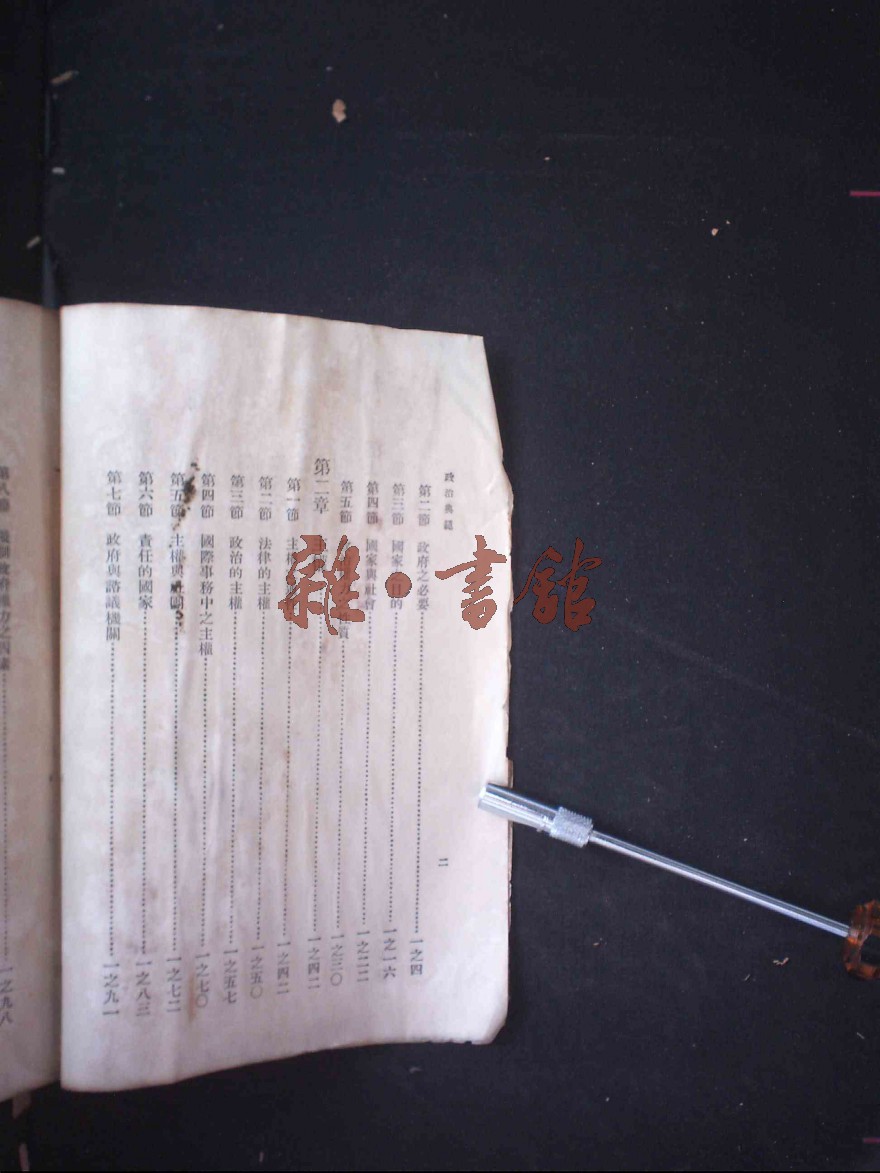 政治典範
二
第二節 政府之必要 一之四
第三節 國家之目的 一之一六
第四節 國家與社會 一之二二
第五節 質 一之三〇
第二章 主權 一之四二
第一節 主權 一之四二
第二節 法律的主權 一之五〇
第三節 政治的主權 一之五七
第四節 國際事務中之主權 一之七〇
第五節 主權與社團 一之七二
第六節 責任的國家 一之八三
第七節 政府與諮議機關 一之九一
第八節 政府權力之因素 一之九八
雜·書館